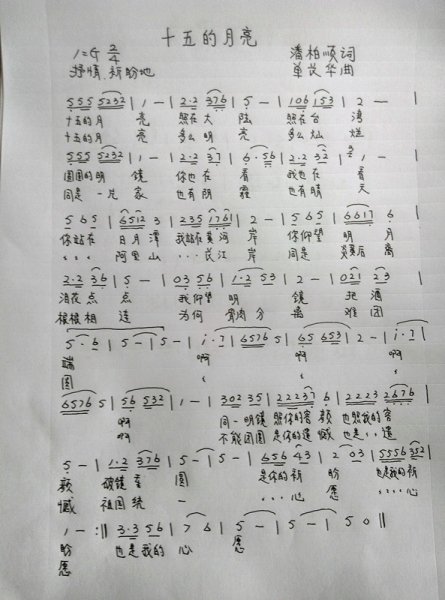 十五的月亮
1=G 2/4 潘柏顺词
抒情、祈盼地 单茂华曲
555 5232 | 1 - | 2·2 376 | 5 - | 106 153 | 2 - |
十五的月 亮 照在大 陆 照在台 湾
十五的月 亮 多么明 亮 多么灿 烂
555 5232 | 1 - | 2·2 37 | 6·56 | 2·2 32 | 1 - |
圆圆的明 镜 你也在 看 我也在 看
同是一片 家 也有阴 霾 也有晴 天
5 65 | 6512 3 | 235 1761 | 2 - | 5 65 | 6617 6 |
你站在 日月潭 我站在黄河 岸 你仰望 明 月
阿里山 长江岸 同是 离
2·2 36 | 5 - | 03 56 | 1·2 53 | 2 - | 021 23 |
泪花点 点 我仰望 明 镜 把酒
接接相 连 为何 骨肉分 离 难团
5·6 | 5 - | 5 - | i·7 | 6576 5 | 65 653 | 2 - | i·7 |
端 啊 啊 啊
圆
6576 5 | 56 532 | 1 - | 302 35 | 22237 6 | 2223 2676 |
啊 同一明镜 照你的容 颜 也照我的容
啊 不能团圆 是你的遗 憾 也是 遗
5 - | 1·2 376 | 5 - | 5 - | 656 43 | 2 03 | 5556 352 |
颜 破镜重 圆 是你的祈 盼 也是我的祈
憾 祖国统 一 心 愿 心
1 - :|| 3·3 56 | 7 6 | 5 - | 5 - | 5 0 ||
盼 也是我的 心 愿
愿